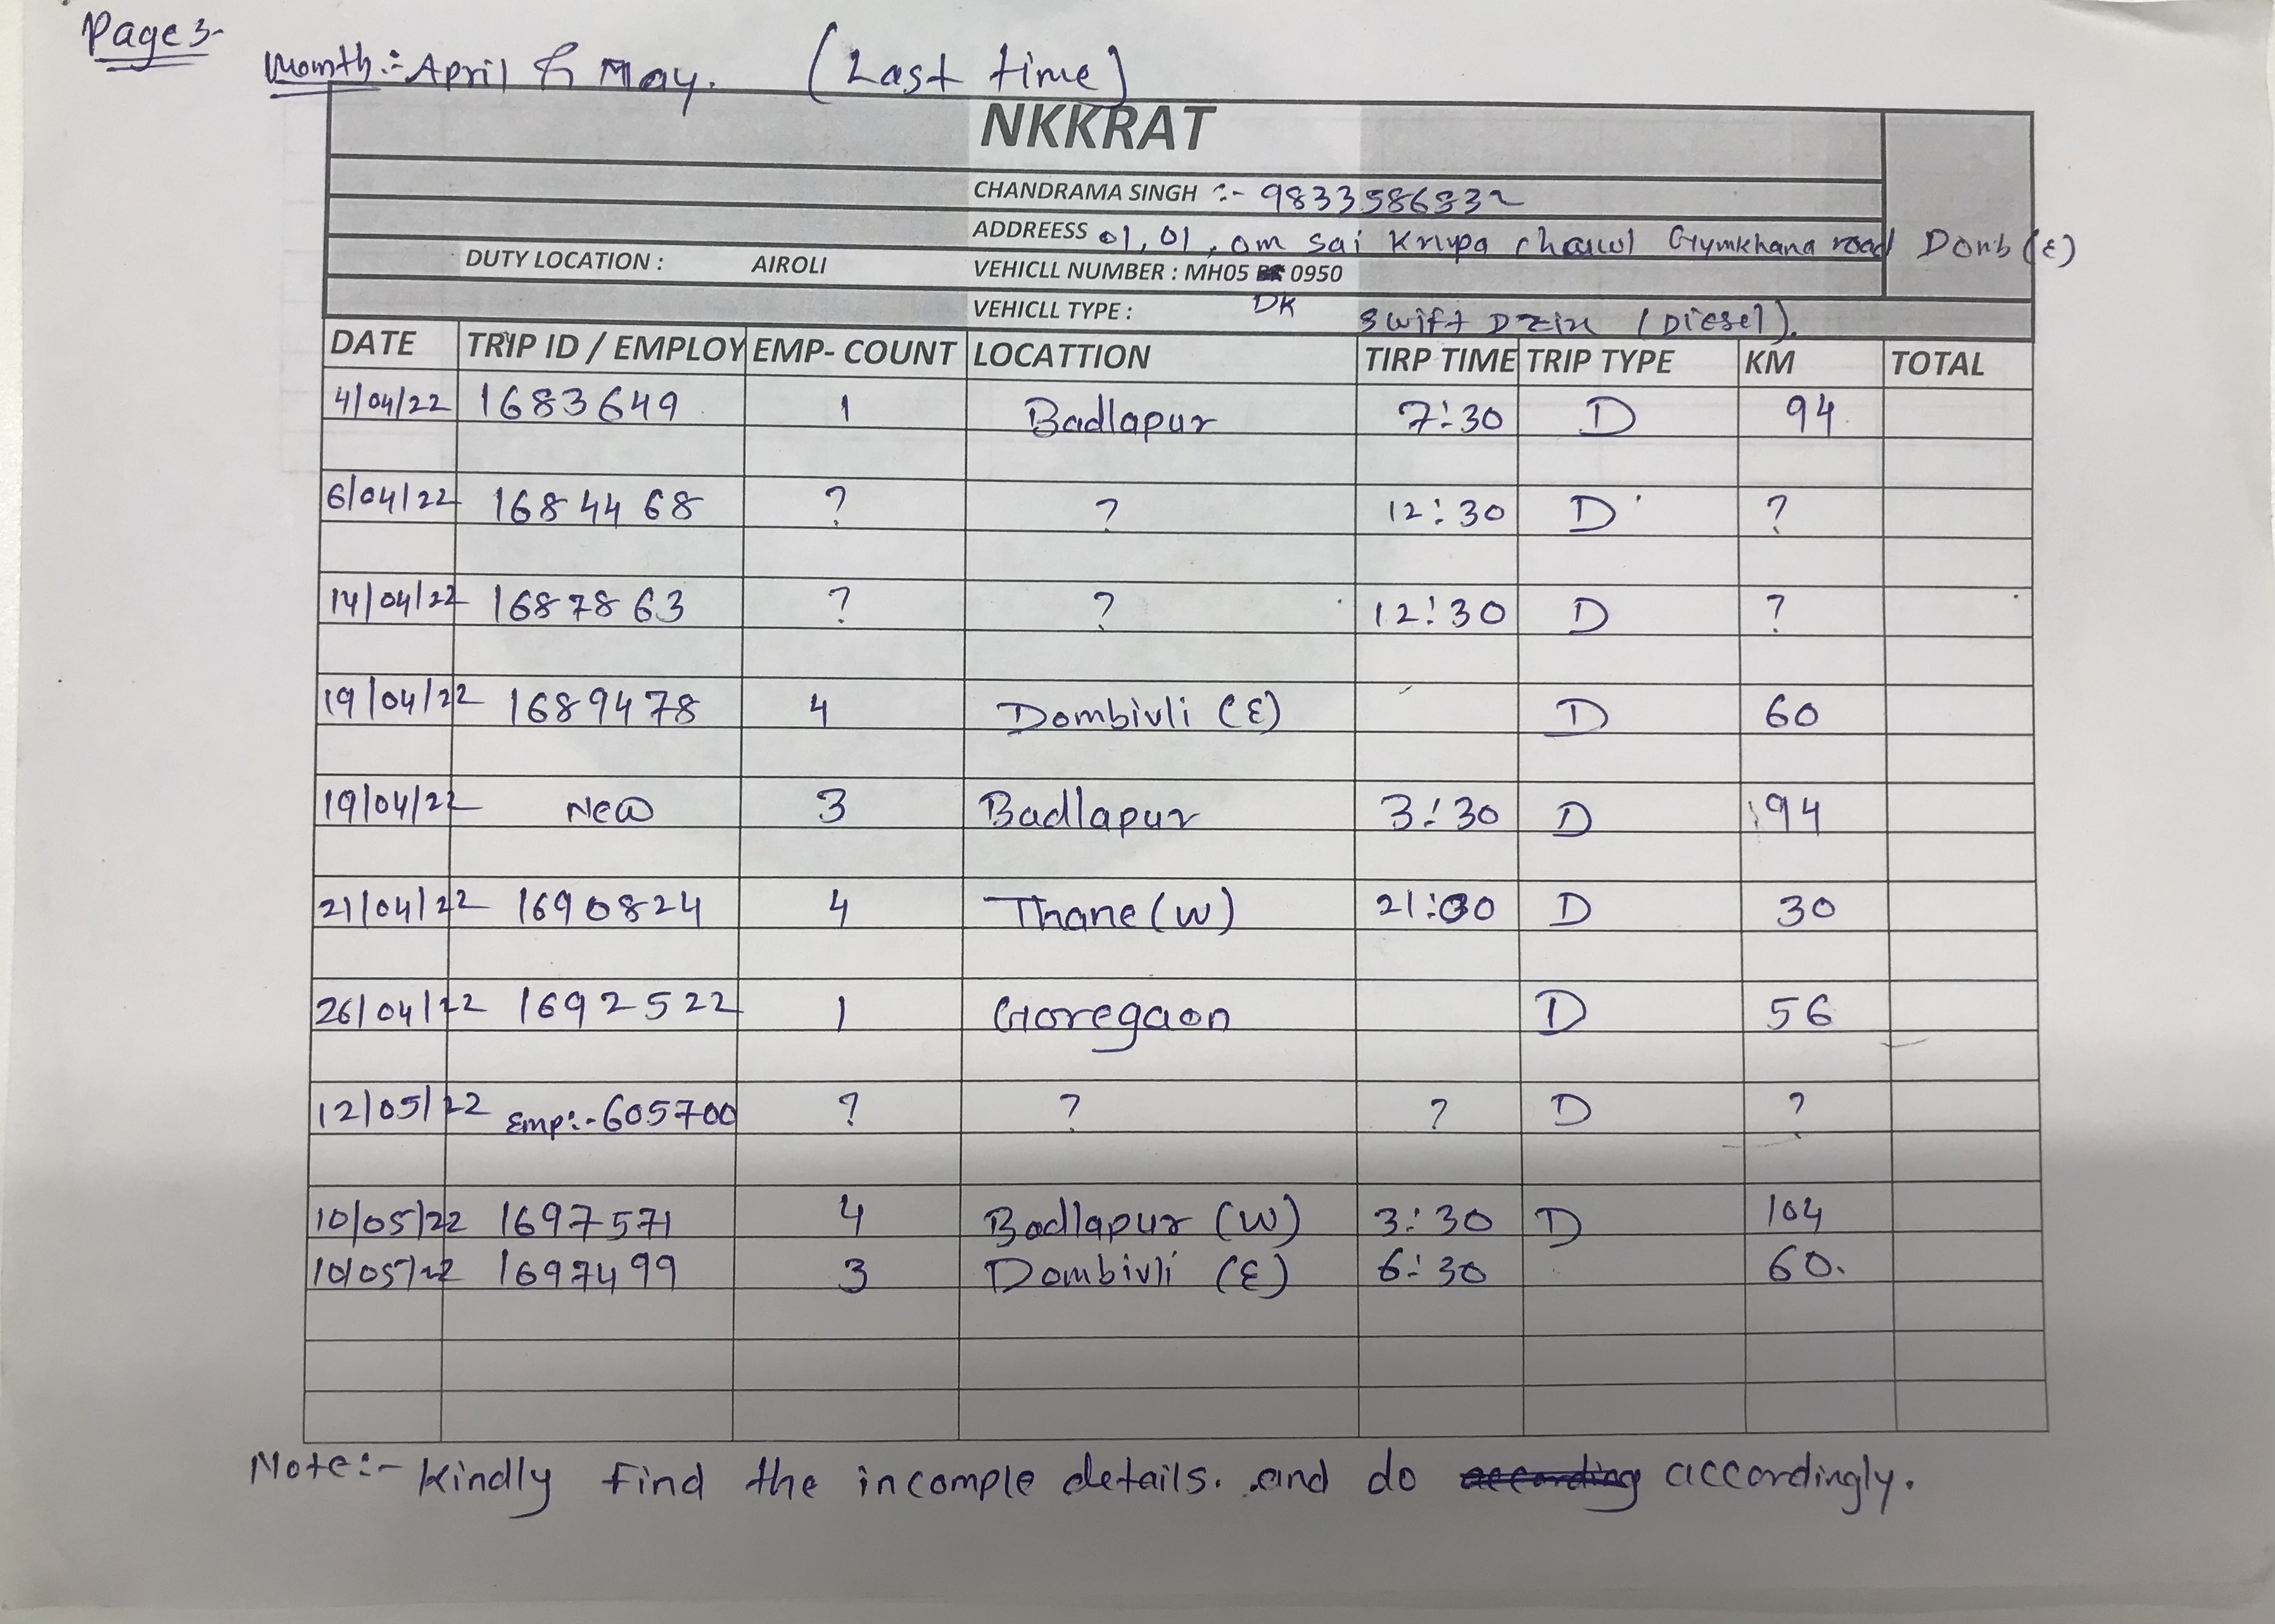 Page 3-
Month:- April & May. (Last time)
NKKRAT
CHANDRAMA SINGH :- 9833586332
ADDREESS 01, 01, om sai Krupa chawl Gymkhana road Domb (E)
DUTY LOCATION : AIROLI VEHICLL NUMBER : MH05 0950
VEHICLL TYPE : DK Swift Dzir (Diesel).
DATE TRIP ID / EMPLOY EMP- COUNT LOCATTION TIRP TIME TRIP TYPE KM TOTAL
4/04/22 1683649 1 Badlapur 7:30 D 94
6/04/22 1684468 ? ? 12:30 D ?
14/04/22 1687863 ? ? 12:30 D ?
19/04/22 1689478 4 Dombivli (E) D 60
19/04/22 New 3 Badlapur 3:30 D 94
21/04/22 1690824 4 Thane (W) 21:30 D 30
26/04/22 1692522 1 Goregaon D 56
12/05/22 Emp:-605700 ? ? ? D ?
10/05/22 1697571 4 Badlapur (W) 3:30 D 104
10/05/22 1697499 3 Dombivli (E) 6:30 60.
Note:- Kindly find the incomple details. and do accordingly.